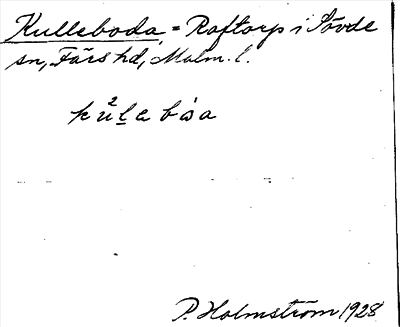 Kulleboda, = Raftorp i Sövde
sn, Färs hd, Malm. l.
P. Holmström 1928